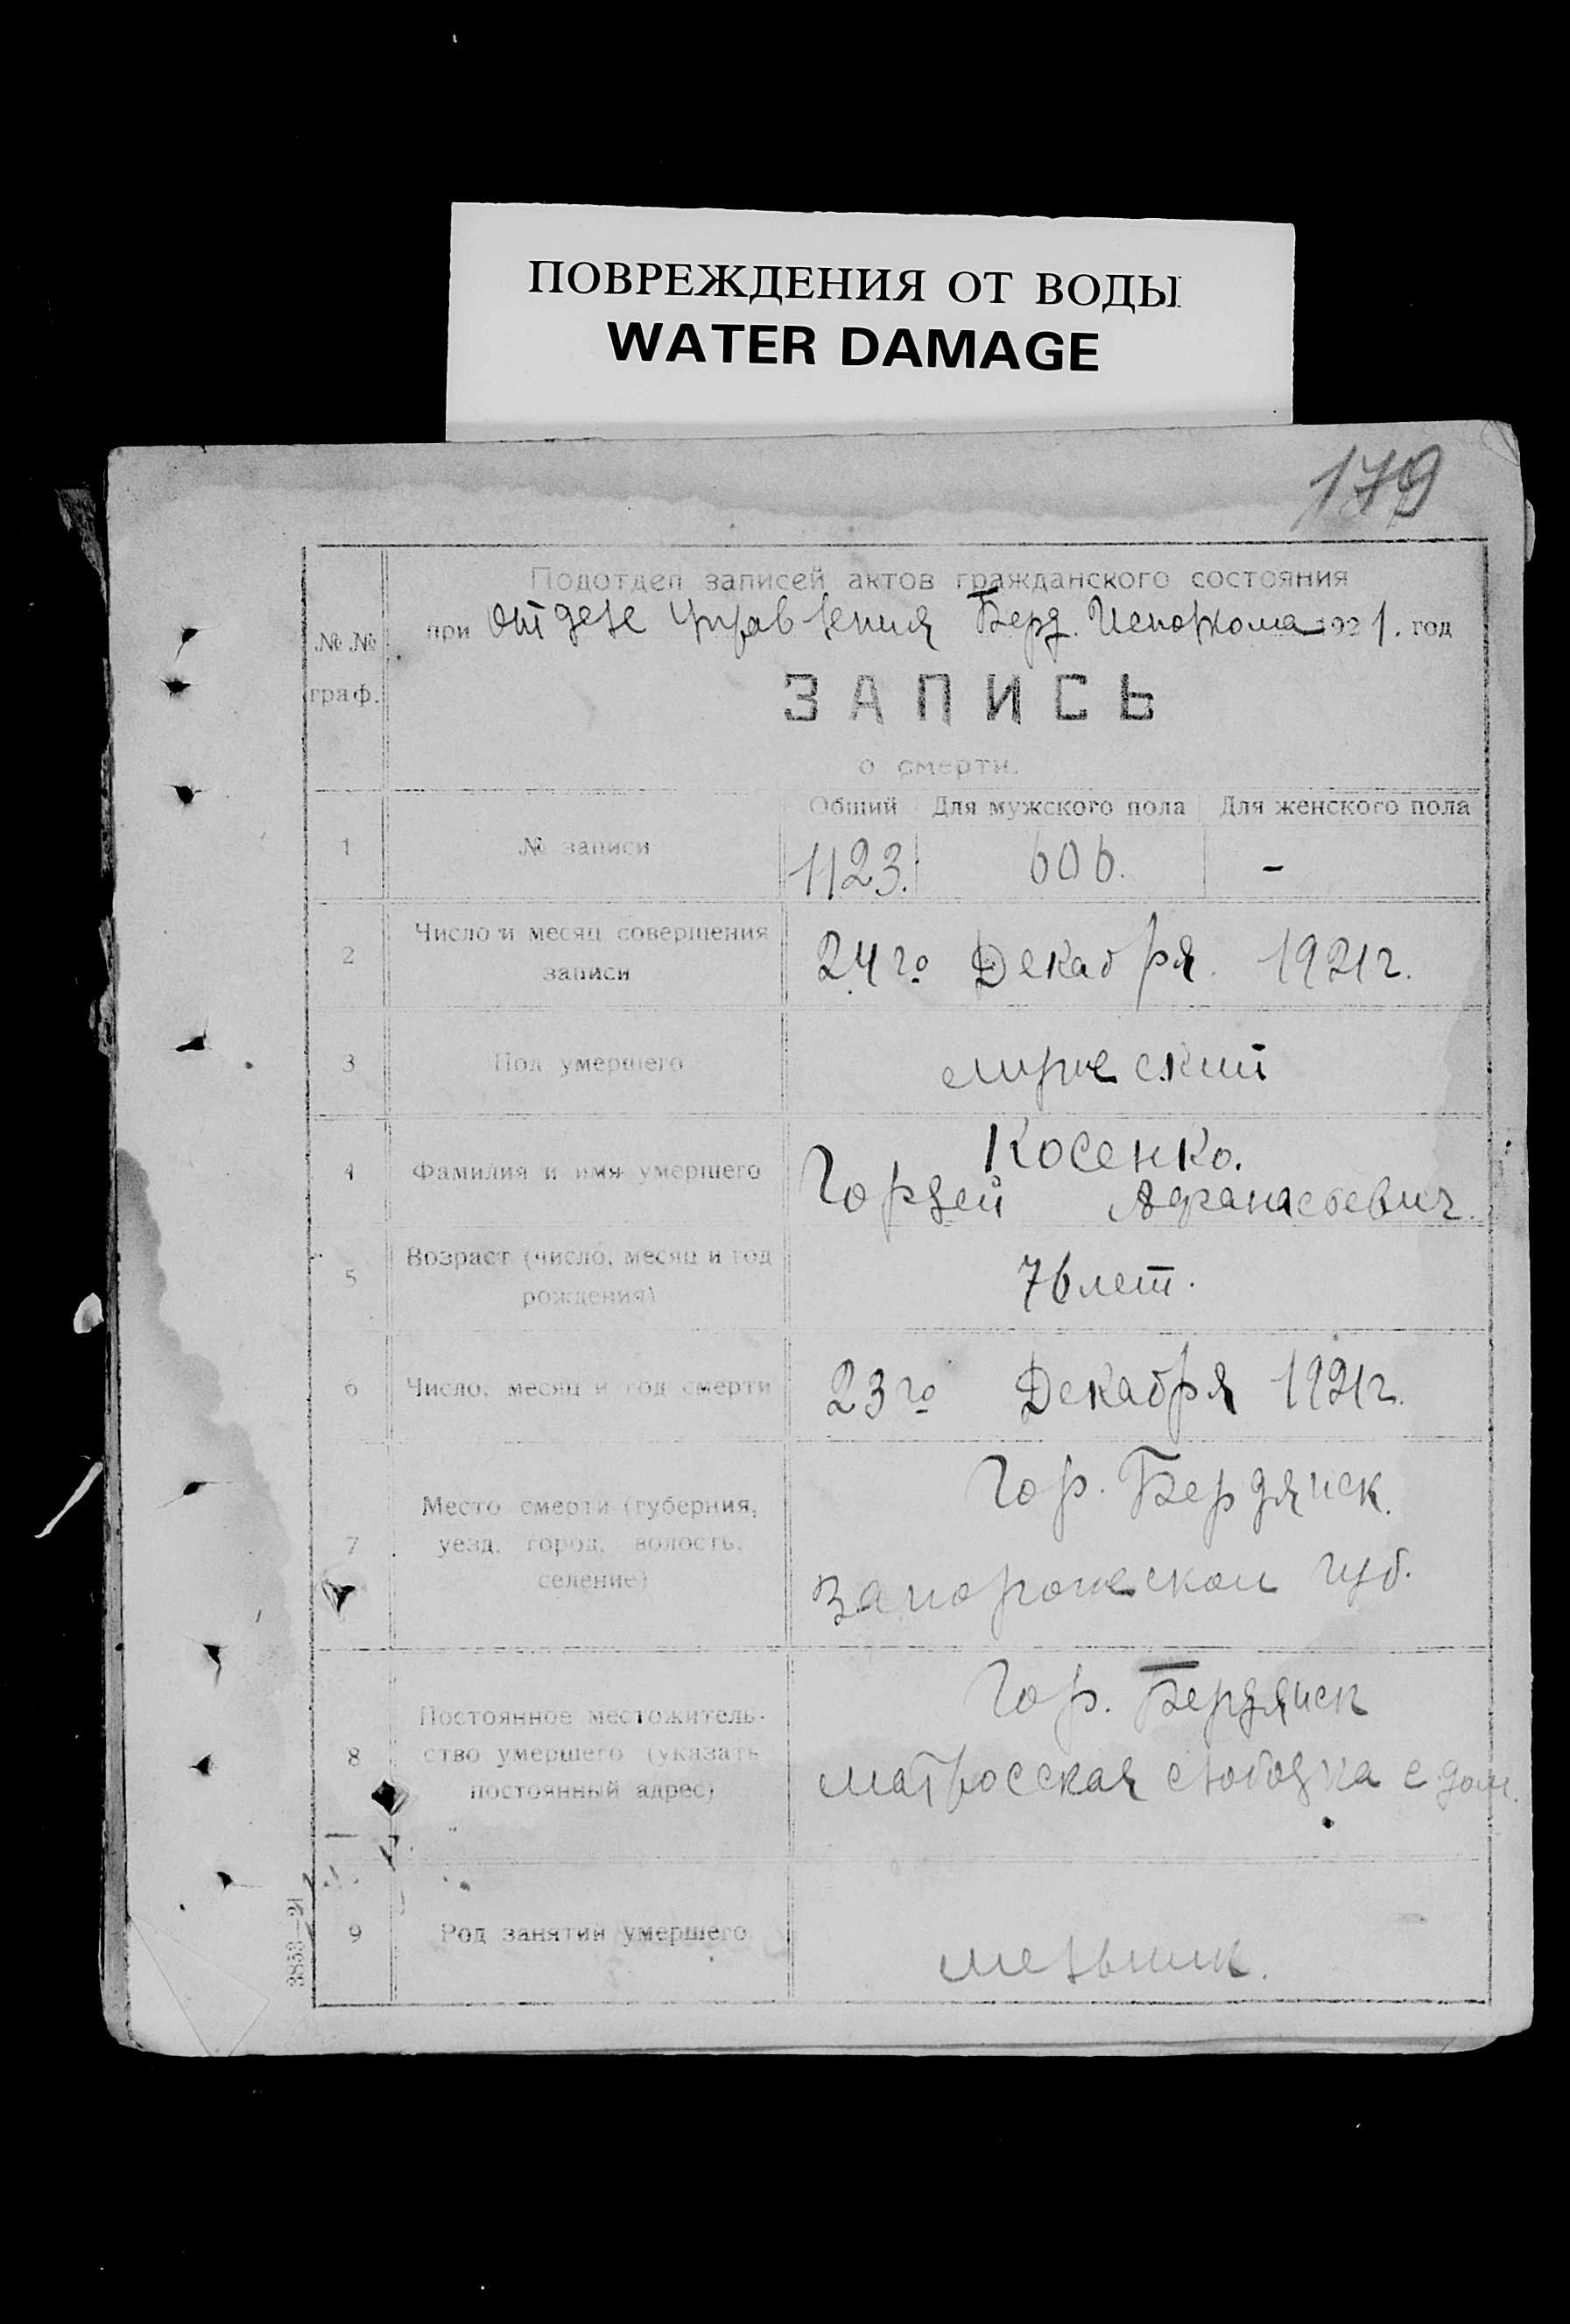 ПОВРЕЖДЕНИЯ ОТ ВОДЫ
WATER DAMAGE
179
Подотдел записей актов гражданского состояния
при отделе управления Берд. Исполкома 1921. год
№№ граф.
ЗАПИСЬ
о смерти.
Общий Для мужского пола Для женского пола
1 № записи 1123. 606. -
2 Число и месяц совершения записи 24го Декабря. 1921г.
3 Пол умершего мужеский
4 Фамилия и имя умершего Косенко.
Гордей Афанасьевич.
5 Возраст (число, месяц и год рождения) 76 лет.
6 Число, месяц и год смерти 23го Декабря 1921г.
7 Место смерти (губерния, уезд, город, волость, селение) Гор. Бердянск.
Запорожской губ.
8 Постоянное местожитель-
ство умершего (указать
постоянный адрес)
Гор. Бердянск
матросская слободка с дом.
9 Род занятий умершего мельник.
3853—21